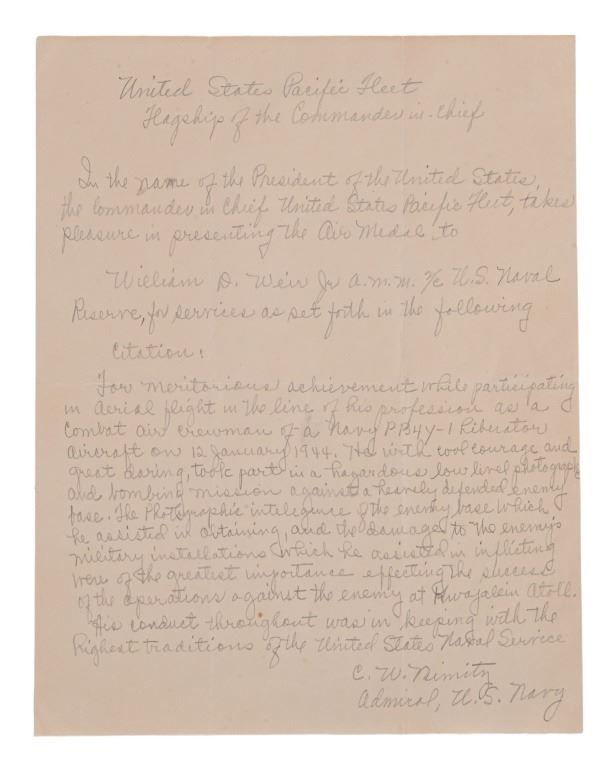 United States Pacific Fleet
Flagship of the Commander in-Chief
In the name of the President of the United States,
the Commander in Chief United States Pacific Fleet, takes
pleasure in presenting the Air Medal to
William D. Weir Jr A.M.M. 3/c U.S. Naval
Reserve, for services as set forth in the following
Citation:
For meritorious achievement while participating
in Aerial flight in the line of his profession as a
Combat air crewman of a Navy PB4y-1 Liberator
aircraft on 12 January 1944. He with cool courage and
great daring, took part in a hazardous low level photograph
and bombing mission against a heavily defended enemy
base. The Photographic intelegence of the enemy base which
he assisted in obtaining, and the damage to the enemy's
military installations which he assisted in inflicting
were of the greatest importance effecting the success
of the operations against the enemy at Kwajalein Atoll.
His conduct throughout was in keeping with the
highest traditions of the United States Naval Service
C. W. Nimitz
Admiral, U.S. Navy